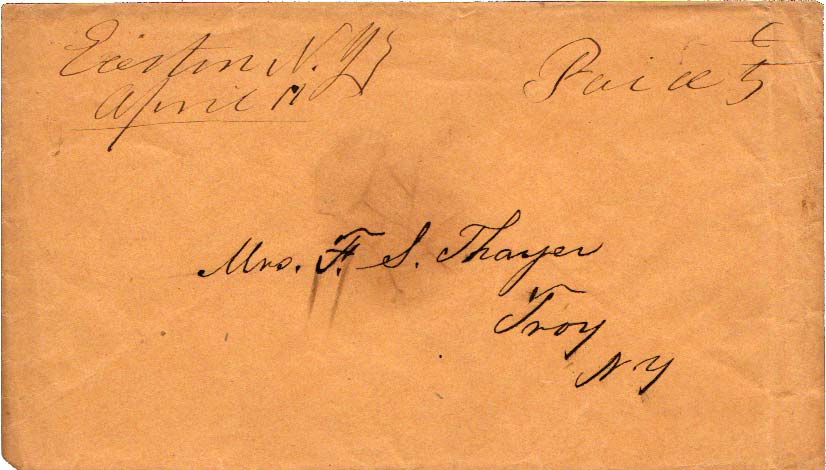 Easton N.Y. Paid 5
April 17
Mrs. F. S. Thayer
Troy
NY